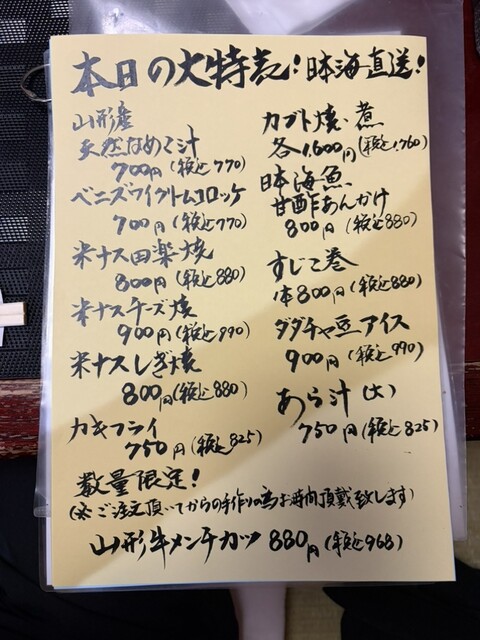 本日の大特売!日本海直送!
山形産
天然なめこ汁
700円(税込770)
ベニズワイグラトムコロッケ
700円(税込770)
米ナス田楽焼
800円(税込880)
米ナスチーズ焼
900円(税込990)
米ナスしぎ焼
800円(税込880)
カキフライ
750円(税込825)
カブト焼・煮
各1,600円(税込1,760)
日本海魚
甘酢あんかけ
800円(税込880)
すじこ巻
1本800円(税込880)
ダダチャ豆アイス
900円(税込990)
あら汁(大)
750円(税込825)
数量限定!
(※ご注文頂いてからの手作りの為お時間頂戴致します)
山形牛メンチカツ 880円(税込968)